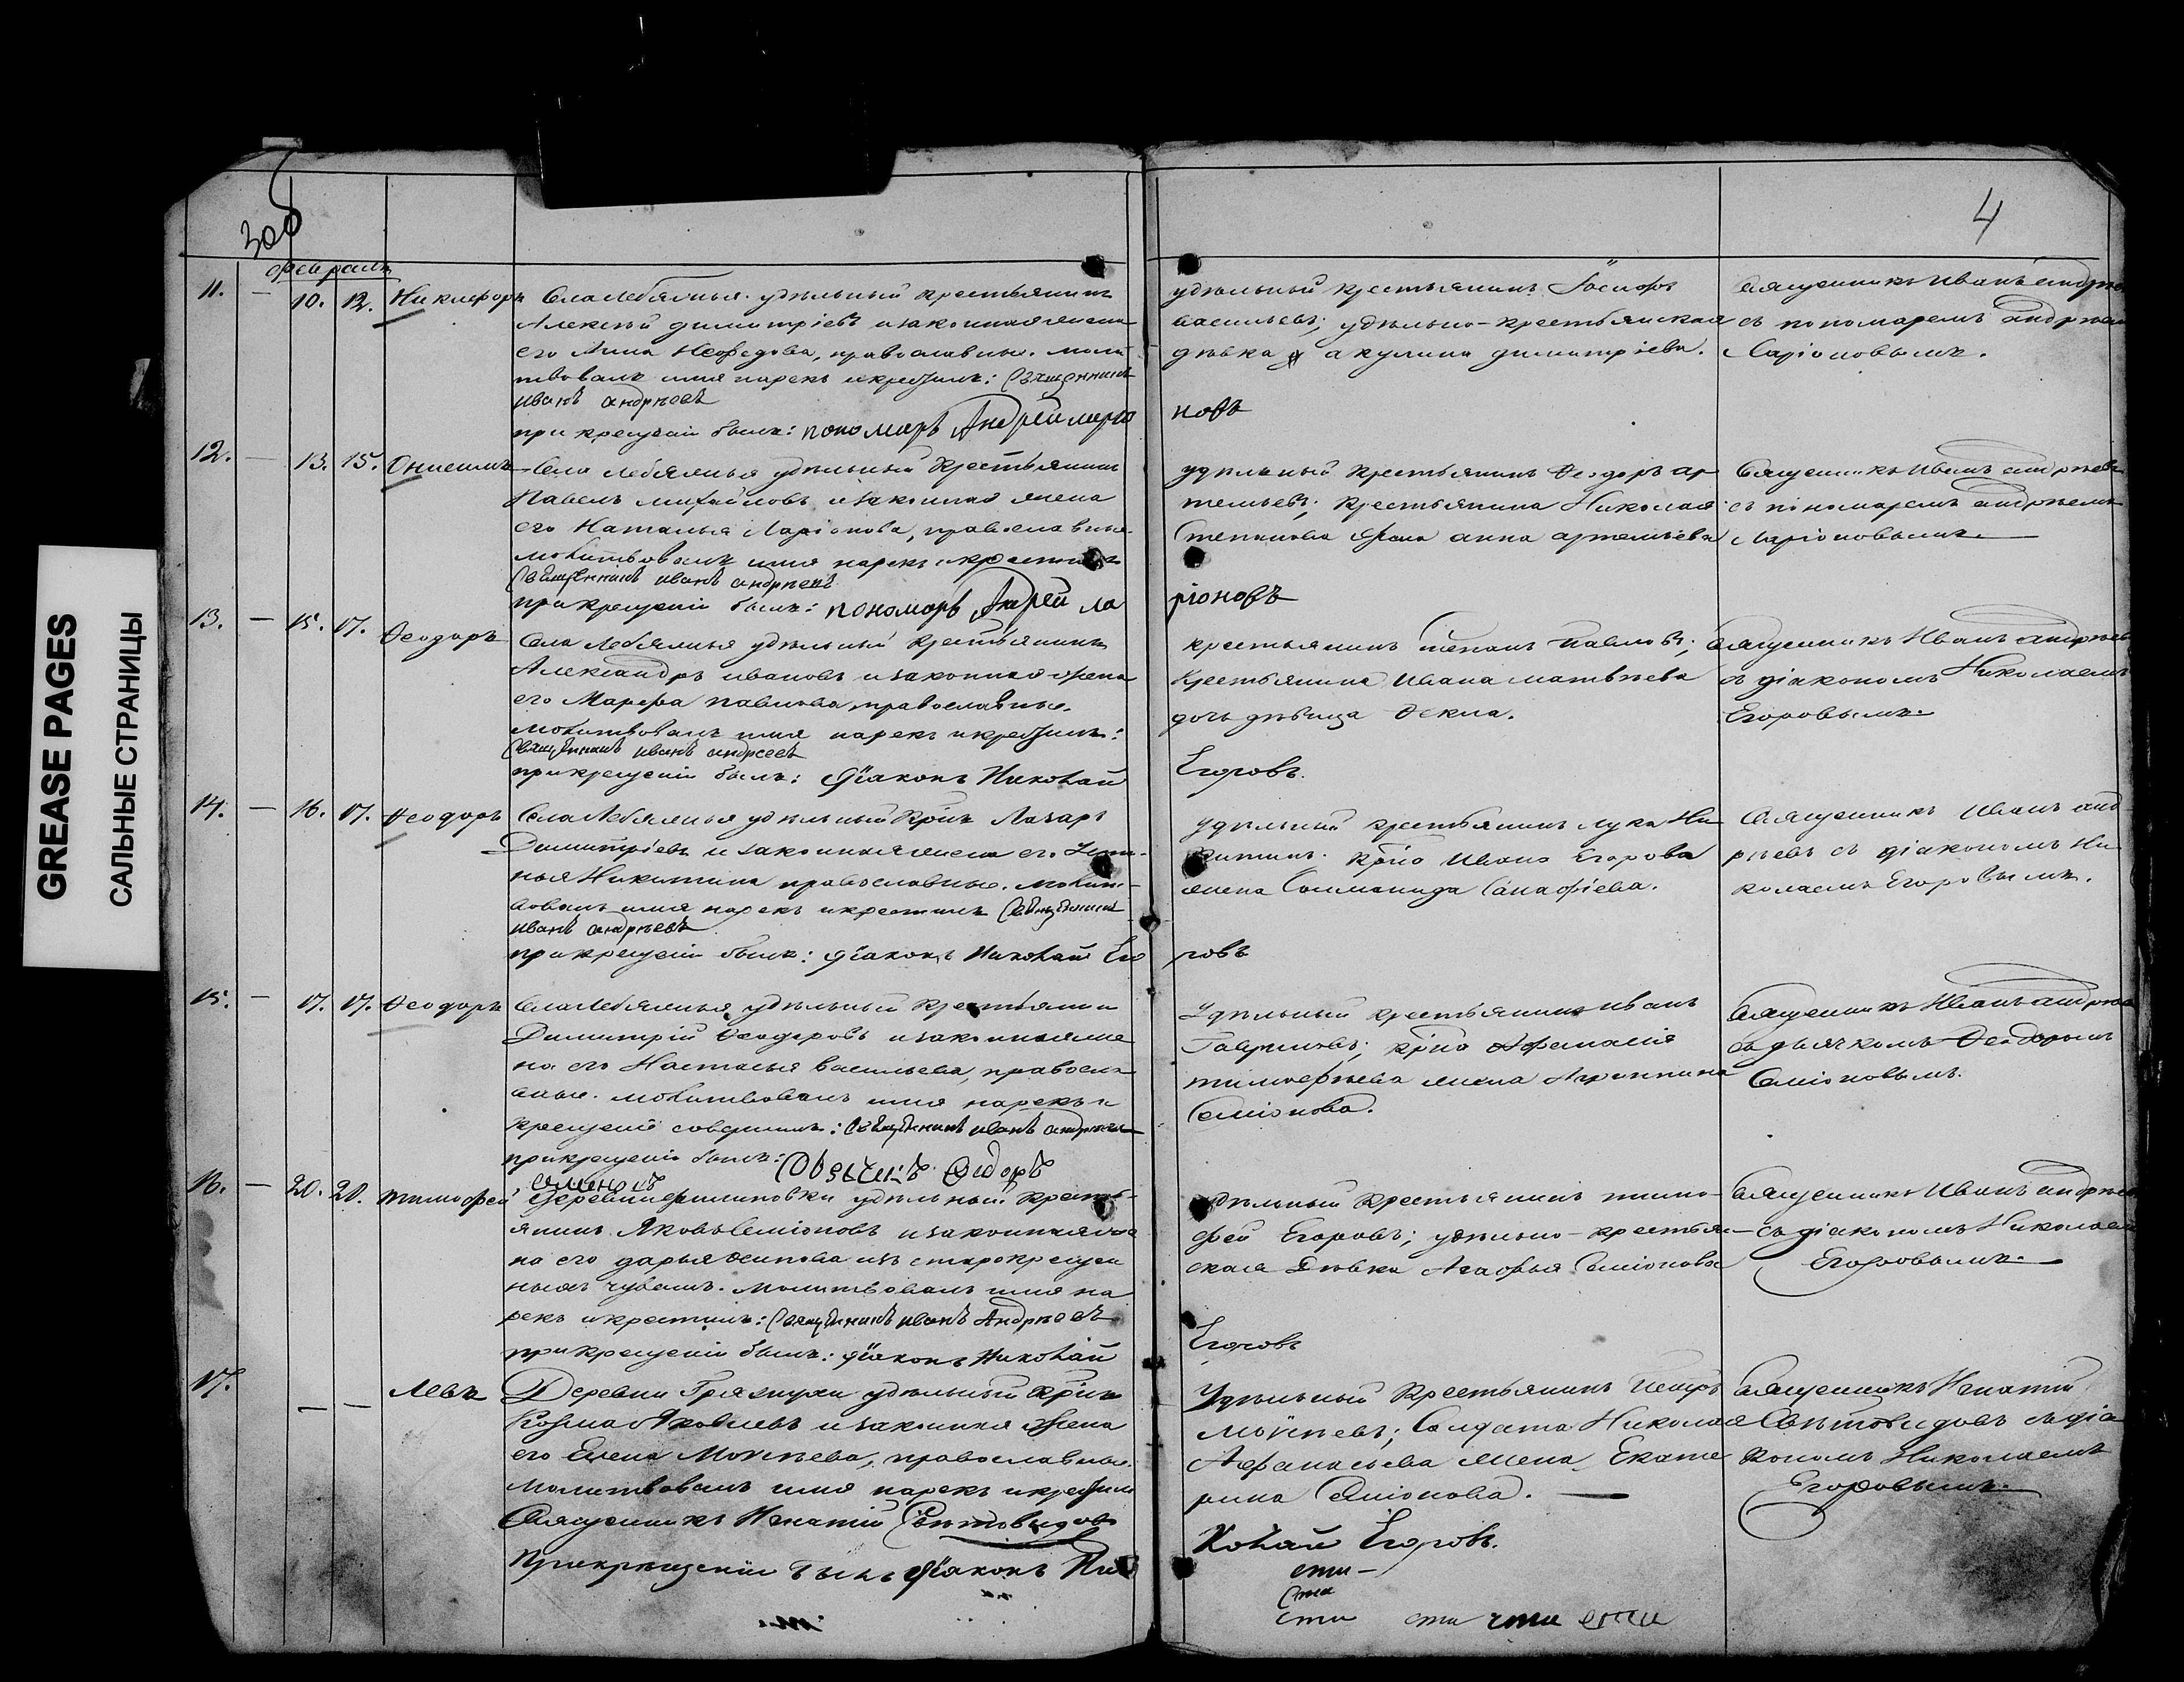 GREASE PAGES
САЛЬНЫЕ СТРАНИЦЫ
300
4
февраль
11. — 10. 12. Никифоръ
Села Лебяжья удѣльный крестьянинъ
Алексѣй Димитріевъ и законная жена
его Анна Нефедова, православные. Моли
твовалъ имя нарекъ и крестилъ: Священникъ
Иванъ Андрѣевъ
при крещеніи былъ: пономарь Андрей Ларіо
удѣльный крестьянинъ Іосифъ
Васильевъ; удѣльно-крестьянская
дѣвка Акулина Димитріева.
новъ
Священникъ Иванъ Андрѣе
съ пономаремъ Андрѣем
Ларіоновымъ.
12. — 13. 15. Онисимъ
Села Лебяжья удѣльный крестьянинъ
Павелъ Михайловъ и законная жена
его Наталья Ларіонова, православные
молитвовалъ имя нарекъ и крестилъ
Священникъ Иванъ Андрѣевъ
при крещеніи былъ: пономарь Андрей Ла
удѣльный крестьянинъ Ѳеодоръ Ар
темьевъ; крестьянина Николая
Степанова жена Анна Артемьева
ріоновъ
Священникъ Иванъ Андрѣевъ
съ пономаремъ Андрѣемъ
Ларіоновымъ.
13. — 15. 17. Ѳеодоръ
Села Лебяжья удѣльный крестьянинъ
Александръ Ивановъ и законная жена
его Марфа Павлова, православные.
молитвовалъ имя нарекъ и крестилъ:
Священникъ Иванъ Андреевъ
при крещеніи былъ: Діаконъ Николай
крестьянинъ Степанъ Павловъ;
крестьянина Ивана Матвѣева
дочь дѣвица Ѳекла.
Егоровъ.
Священникъ Иванъ Андрѣев
съ діакономъ Николаемъ
Егоровымъ.
14. — 16. 17. Ѳеодоръ
Села Лебяжья удѣльный Крнъ Лазарь
Димитріевъ и законная жена его
Никитина православные. Молит-
вовалъ имя нарекъ и крестилъ Священникъ
Иванъ Андрѣевъ
при крещеніи былъ: діаконъ Николай Его
удѣльный крестьянинъ Лука Ни
китинъ. Крна Ивана Егорова
жена Соломонида
ровъ
Священникъ Иванъ Анд
рѣевъ съ діакономъ Ни
колаемъ Егоровымъ.
15. — 17. 17. Ѳеодоръ
Села Лебяжья удѣльный крестьянин
Димитрій Ѳеодоровъ и законная же
на его Настасья Васильева, правосла
вные. молитвовалъ имя нарекъ и
крещеніе совершилъ: Священникъ Иванъ Андрѣевъ
при крещеніи былъ: Ѳедоръ
Семіоновъ
Удѣльный крестьянинъ Иванъ
Гавриловъ; Крна Афанасія
Тимофѣева жена Агрипина
Семіонова.
Священникъ Иванъ Андрѣев
съ дьячкомъ Ѳеодоромъ
Семіоновымъ.
16. — 20. 21. Тимофей
Деревни Филиповки удѣльный кресть-
янинъ Яковъ Семіоновъ и законная же
на его Дарья Осипова изъ старокрещен
ныхъ чувашъ. Молитвовалъ имя на
рекъ и крестилъ: Священникъ Иванъ Андрѣевъ
при крещеніи былъ: діаконъ Николай
удѣльный крестьянинъ Тимо-
фей Егоровъ; удѣльно-крестьян-
ская дѣвка Агафья Семіонова
Егоровъ
Священникъ Иванъ Андрѣевъ
съ діакономъ Николаем
Егоровымъ.
17. — — Левъ
Деревни Грязнухи удѣльный Крнъ
Козма Яковлевъ и законная жена
его Елена Мокѣева, православные.
Молитвовалъ имя нарекъ и крестил
Священникъ Игнатій Свѣтовидовъ
При крѣщеніи былъ Діаконъ Ни
Удѣльный крестьянинъ Петръ
Мокѣевъ; Солдата Николая
Афанасьева жена Екате
рина Семіонова.
колай Егоровъ.
Священникъ Игнатій
Свѣтовидовъ съ діа
кономъ Николаемъ
Егоровымъ.
сти
сти
сти сти сти сти